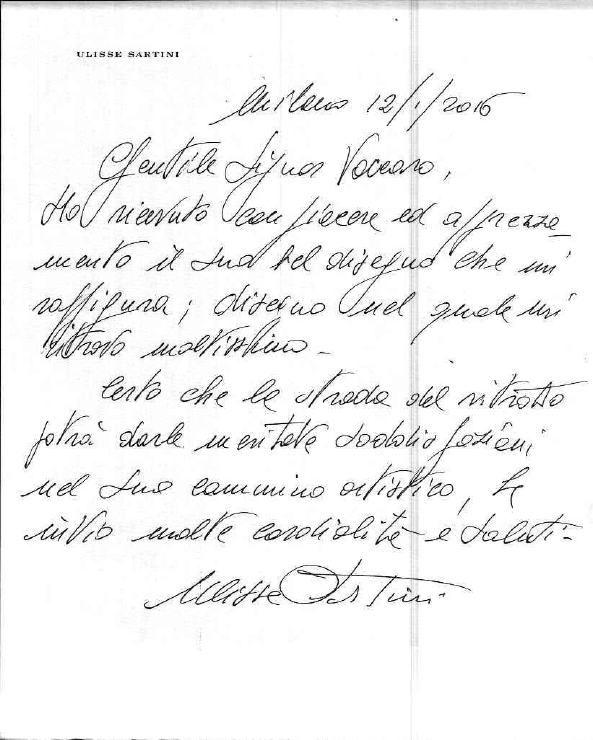 ULISSE SARTINI
Milano 12/1/2016
Gentile Signor Vaccaro,
Ho ricevuto con piacere ed apprezza_
mento il suo bel disegno che mi
raffigura; disegno nel quale mi
ritrovo moltissimo -
Certo che la strada del ritratto
potrà darle meritate soddisfazioni
nel suo cammino artistico, Le
invio molte cordialità e saluti -
Ulisse Sartini